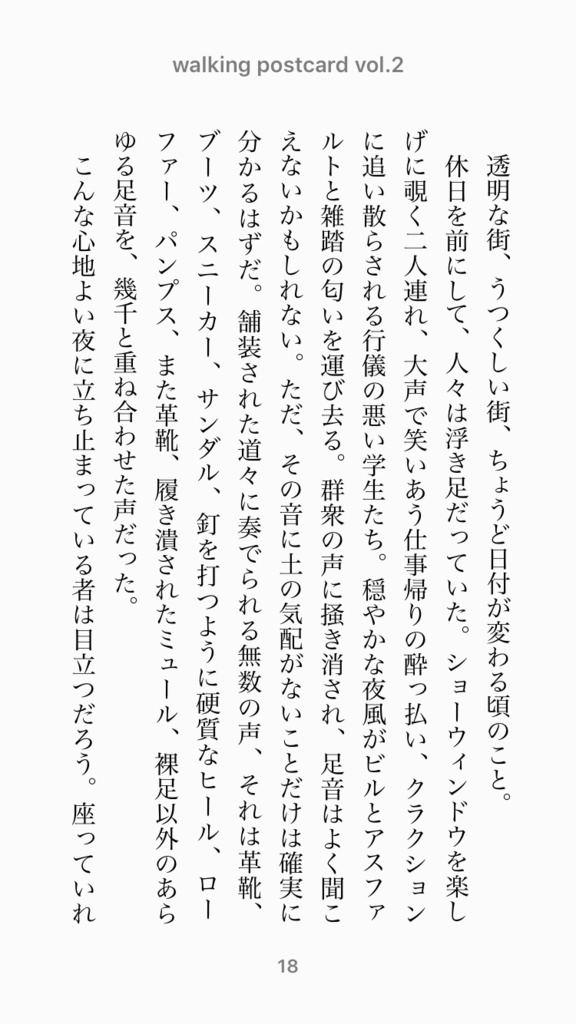 walking postcard vol.2
透明な街、うつくしい街、ちょうど日付が変わる頃のこと。
休日を前にして、人々は浮き足だっていた。ショーウィンドウを楽し
げに覗く二人連れ、大声で笑いあう仕事帰りの酔っ払い、クラクション
に追い散らされる行儀の悪い学生たち。穏やかな夜風がビルとアスファ
ルトと雑踏の匂いを運び去る。群衆の声に掻き消され、足音はよく聞こ
えないかもしれない。ただ、その音に土の気配がないことだけは確実に
分かるはずだ。舗装された道々に奏でられる無数の声、それは革靴、
ブーツ、スニーカー、サンダル、釘を打つように硬質なヒール、ロー
ファー、パンプス、また革靴、履き潰されたミュール、裸足以外のあら
ゆる足音を、幾千と重ね合わせた声だった。
こんな心地よい夜に立ち止まっている者は目立つだろう。座っていれ
18